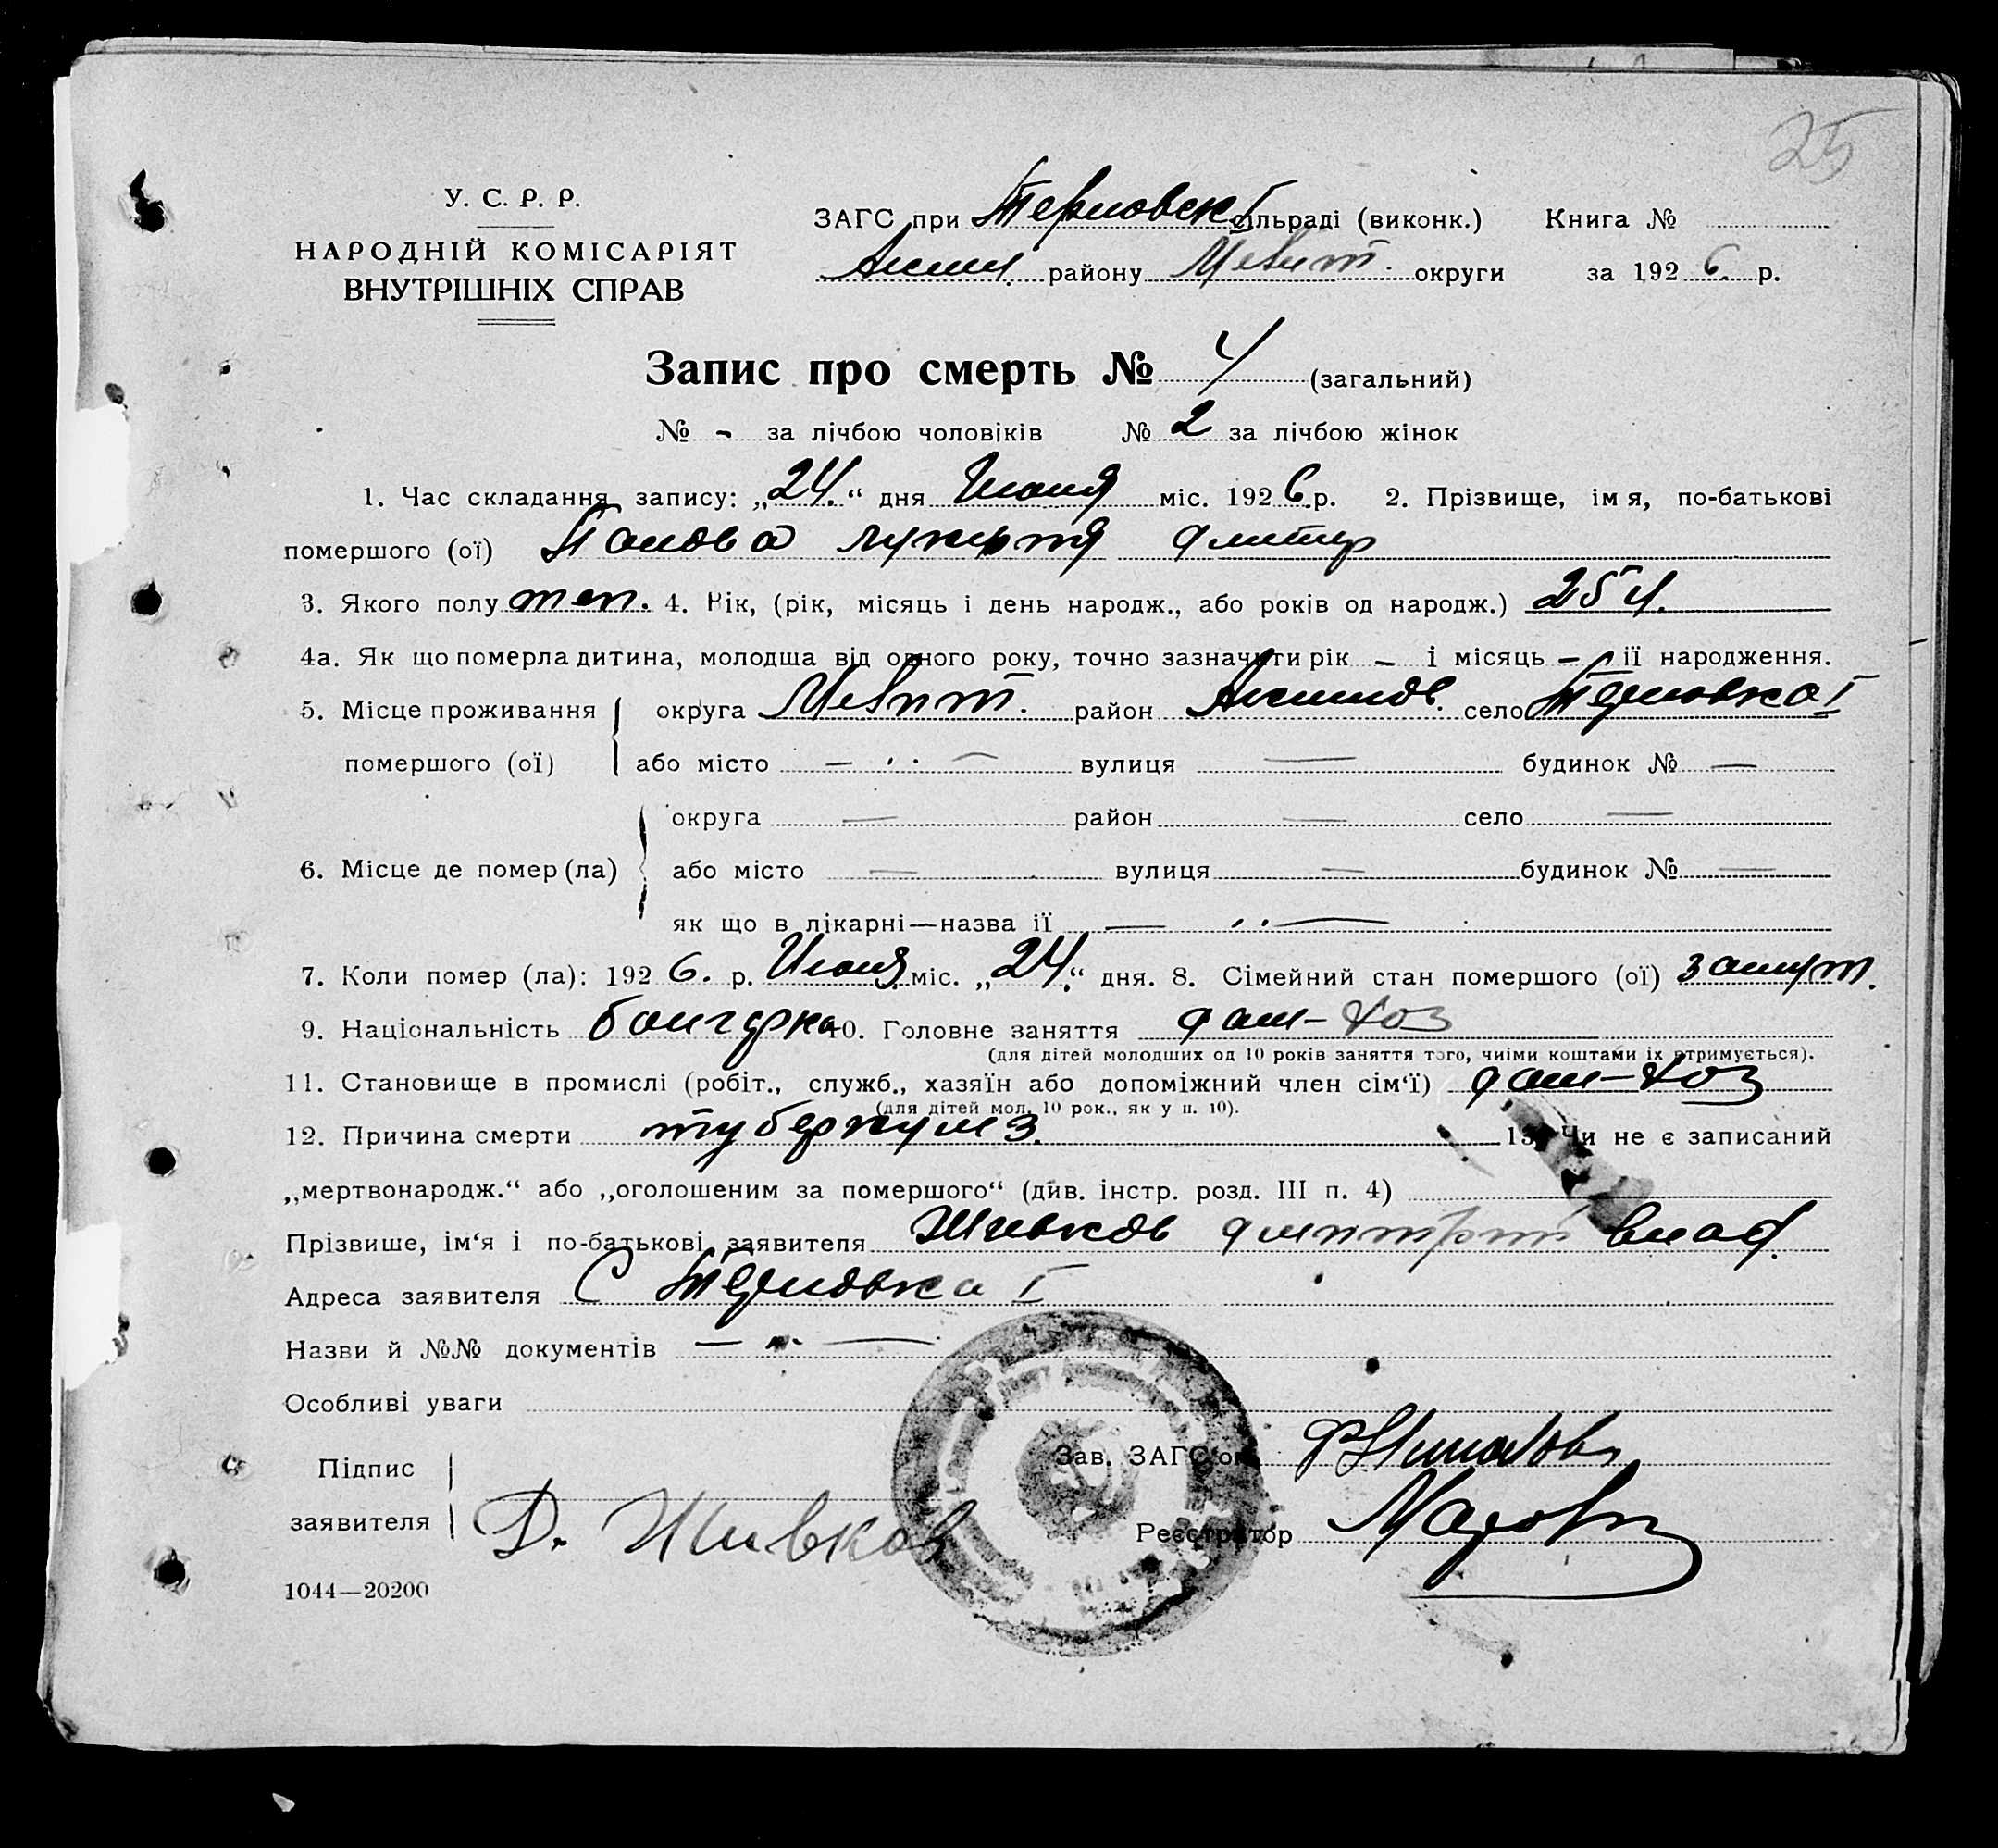 25
У. С. Р. Р.
НАРОДНІЙ КОМІСАРІЯТ
ВНУТРІШНІХ СПРАВ
ЗАГС при Терновск сільраді (виконк.) Книга №
Аким. району Меліт. округи за 1926 р.
Запис про смерть № 4 (загальний)
№ - за лічбою чоловіків № 2 за лічбою жінок
1. Час складання запису: „24.“ дня Июня міс. 1926 р. 2. Прізвище, імя, по-батькові
помершого (ої) Панова Лукерия Дмитр
3. Якого полу 4. Рік, (рік, місяць і день народж., або років од народж.) 25 л.
4а. Як що померла дитина, молодша від одного року, точно зазначити рік — і місяць — її народження.
5. Місце проживання округа Меліт. район Акимов. село Терновка I
помершого (ої) або місто — вулиця — будинок № —
округа — район — село —
6. Місце де помер (ла) або місто — вулиця — будинок № —
як що в лікарні—назва її — „ —
7. Коли помер (ла): 1926. р. Июня міс. „24“ дня. 8. Сімейний стан помершого (ої) замуж.
9. Національність болгарка 10. Головне заняття дом-хоз
(для дітей молодших од 10 років заняття того, чиїми коштами їх втримується).
11. Становище в промислі (робіт., служб., хазяїн або допоміжний член сім‘ї) дом-хоз
(для дітей мол. 10 рок., як у п. 10).
12. Причина смерти туберкулиз. 13. Чи не є записаний
„мертвонародж.“ або „оголошеним за помершого“ (див. інстр. розд. III п. 4)
Прізвише, ім‘я і по-батькові заявителя Живков Дмитрий Влад.
Адреса заявителя С Терновка I
Назви й №№ документів — „ —
Особливі уваги
Підпис Зав. ЗАГС‘ом
заявителя Д. Живков Реєстратор
1044—20200